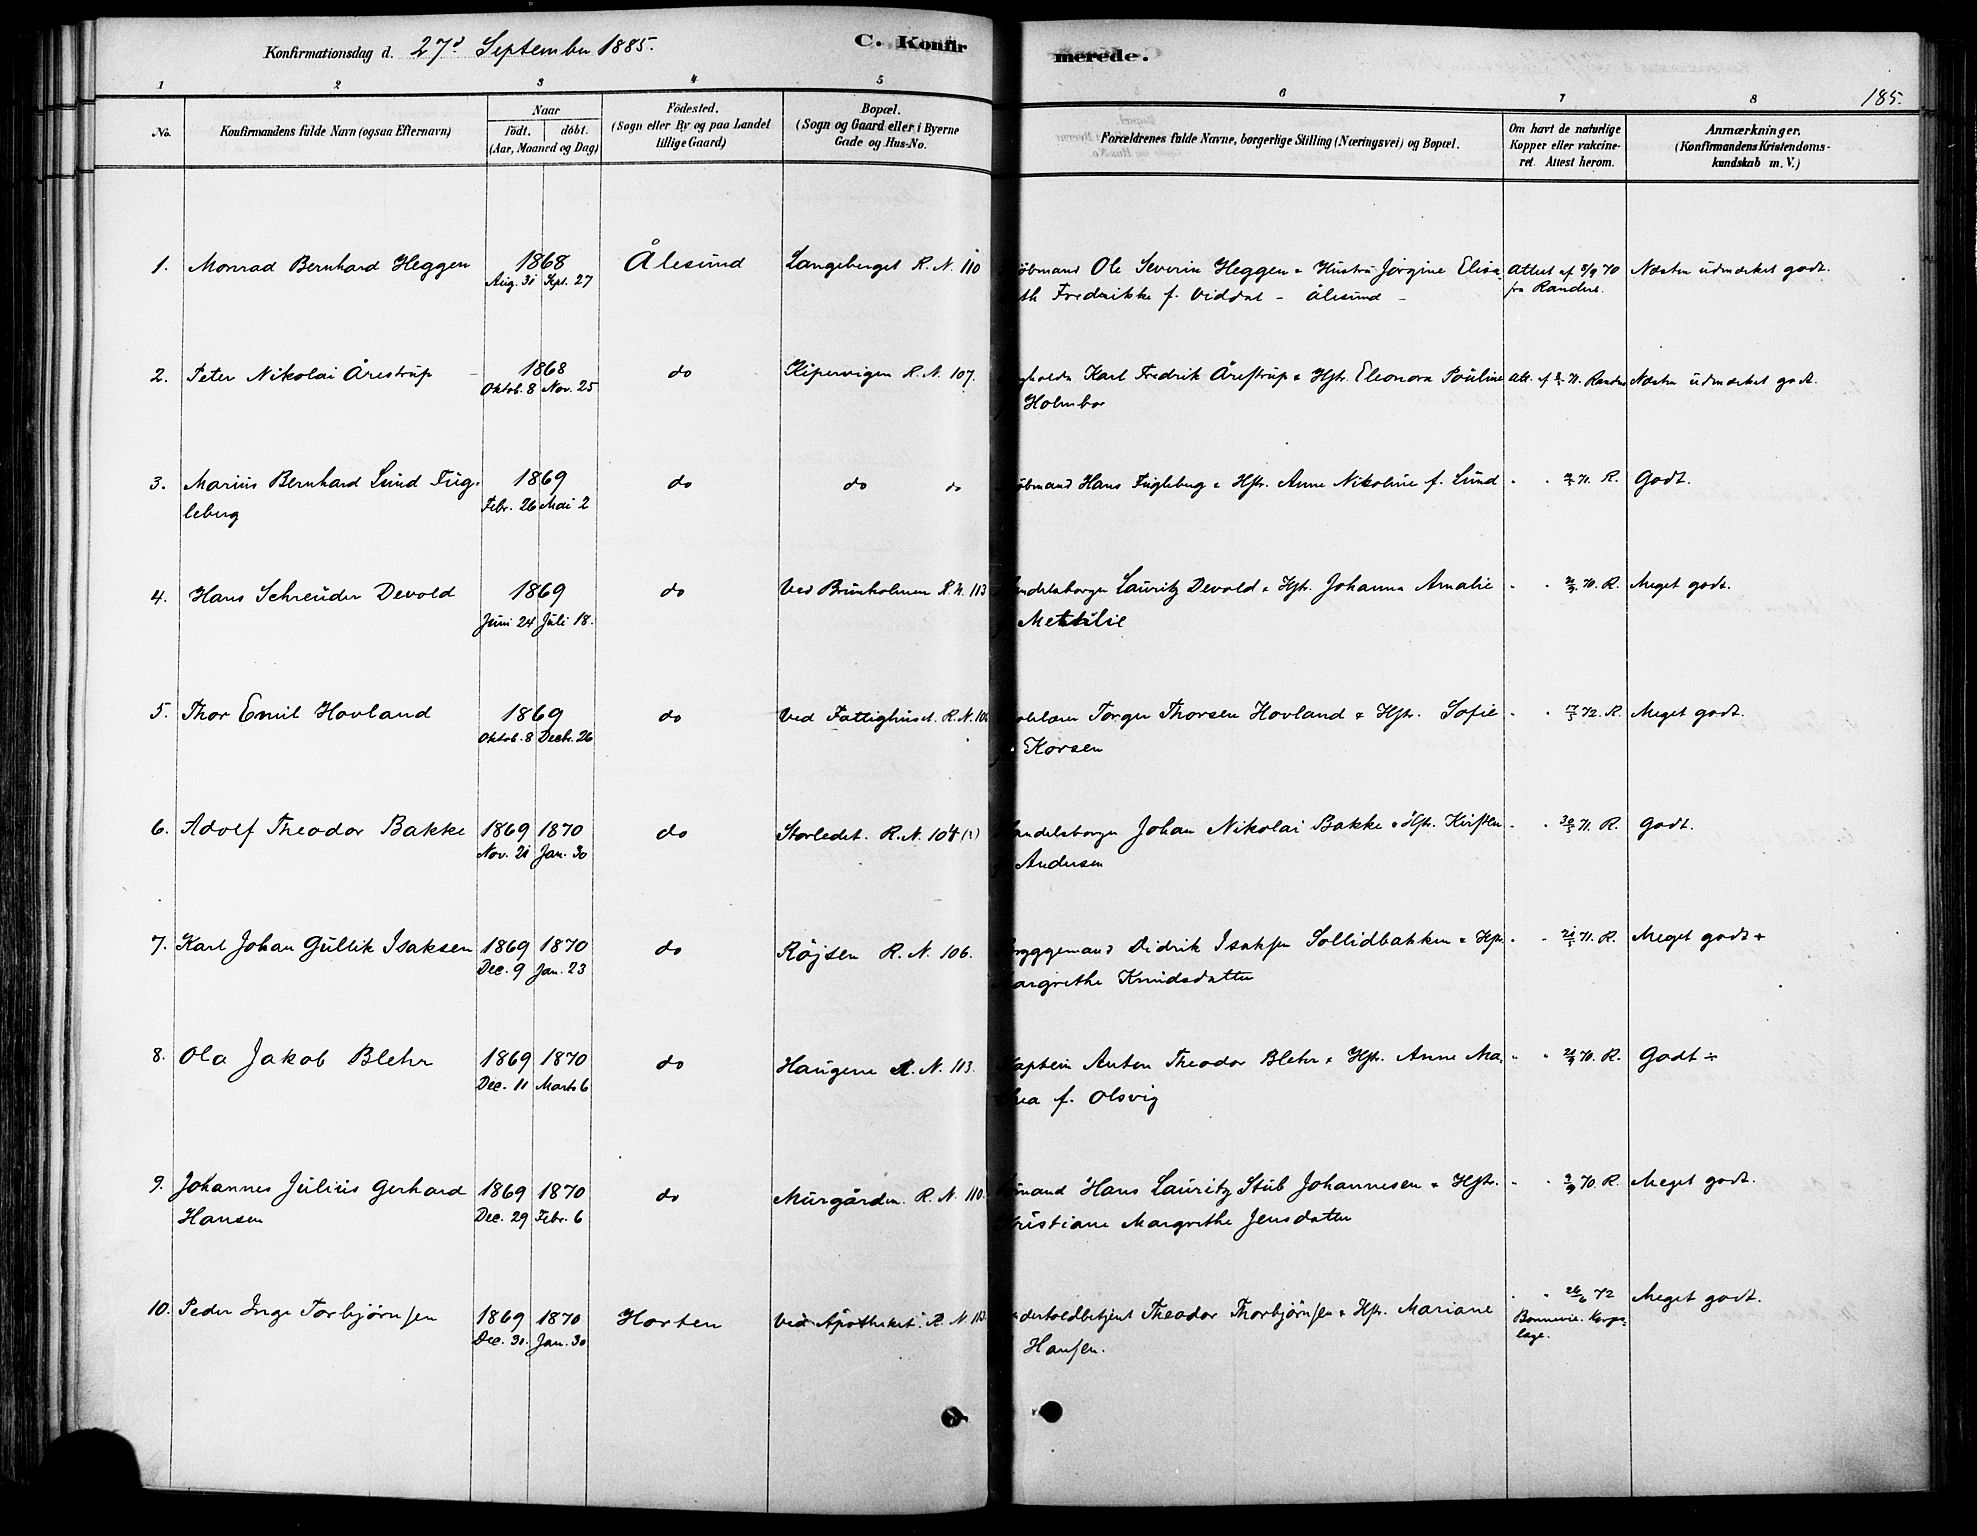 Konfirmationsdag d. 27d September 1885.
C. Konfirmerede.
185.
1 2 3 4 5 6 7 8
No.
Konfirmandens fulde Navn (ogsaa Efternavn)
Naar
födt. döbt.
(Aar, Maaned og Dag)
Födested.
(Sogn eller By og paa Landet
tillige Gaard)
Bopæl.
(Sogn og Gaard eller i Byerne
Gade og Hus-No.
Forældrenes fulde Navne, borgerlige Stilling (Næringsvei) og Bopæl.
Om havt de naturlige
Kopper eller vakcine-
ret. Attest herom.
Anmærkninger.
(Konfirmandens Kristendoms-
kundskab m. V.)
1. Monrad Bernhard Heggen 1868 Ålesund Langeberget R. N. 110 Ole Severin Heggen & Hustru Jörgine Elisa- Attest af 8/9 70 Næsten udmærket godt.
Aug. 31 Sept. 27 th Fredrikke f. Viddal - Ålesund - fra Randers.
2. Peter Nikolai Årestrup 1868 do Kipervigen R. N. 107. Karl Fredrik Årestrup & Hstr. Eleonora Pauline Att. af 71. Næsten udmærket godt.
Oktob. 8 Nov. 25 Holmboe
3. Marius Bernhard Lund Fug- 1869 do do do öbmand Hans Fugleberg & Hstr. Anne Nikoline f. Lund " " 71. R. Godt.
leberg Febr. 26 Mai 2
4. Hans Schreuder Devold 1869 do Ved Brunholmen R. N. 113 ndelsborger Lauritz Devold & Hstr. Johanna Amalie " " 70. R. Meget godt.
Juni 24 Juli 18. Methilie
5. Thor Emil Hovland 1869 do Ved Fattighuset. R. N. Torger Thorsen Hovland & Hstr. Sofie " " 17/5 72. R. Meget godt.
Oktob. 8 Decbr. 26 Korsen
6. Adolf Theodor Bakke 1869 1870 do Storledet. R. N. 104 (?) andelsborger Johan Nikolai Bakke & Hstr. Kirsten " " 30/5 71. R. Godt.
Nov. 21 Jan. 30 Andersen
7. Karl Johan Gullik Isaksen 1869 1870 do Röjsen R. N. 106. ryggemand Didrik Isaksen Sollidbakken & Hstr. " " 21/5 71. R. Meget godt +
Dec. 9 Jan. 23 Margrethe Knudsdatter
8. Ola Jakob Blehr 1869 1870 do Haugene R. N. 113. Kaptein Anton Theodor Blehr & Hstr. Anne Ma- " " 21/9 70. R. Godt ÷
Dec. 11 Marts 6 thea f. Olsvig
9. Johannes Julius Gerhard 1869 1870 do Murgården. R. N. 110. mand Hans Lauritz Stub Johannesen & Hstr. " " 9/9 70. R. Meget godt.
Hansen Dec. 29 Febr. 6 Kristiane Margrethe Jensdatter
10. Peder Inge Torbjörnsen 1869 1870 Horten Ved Apotheket. R. N. 113. dertoldbetjent Theodor Thorbjörnsen & Hstr. Mariane " " 26/6 72 Meget godt.
Dec. 30. Jan. 30 Hansen. Bonnevie. Korps-
læge.